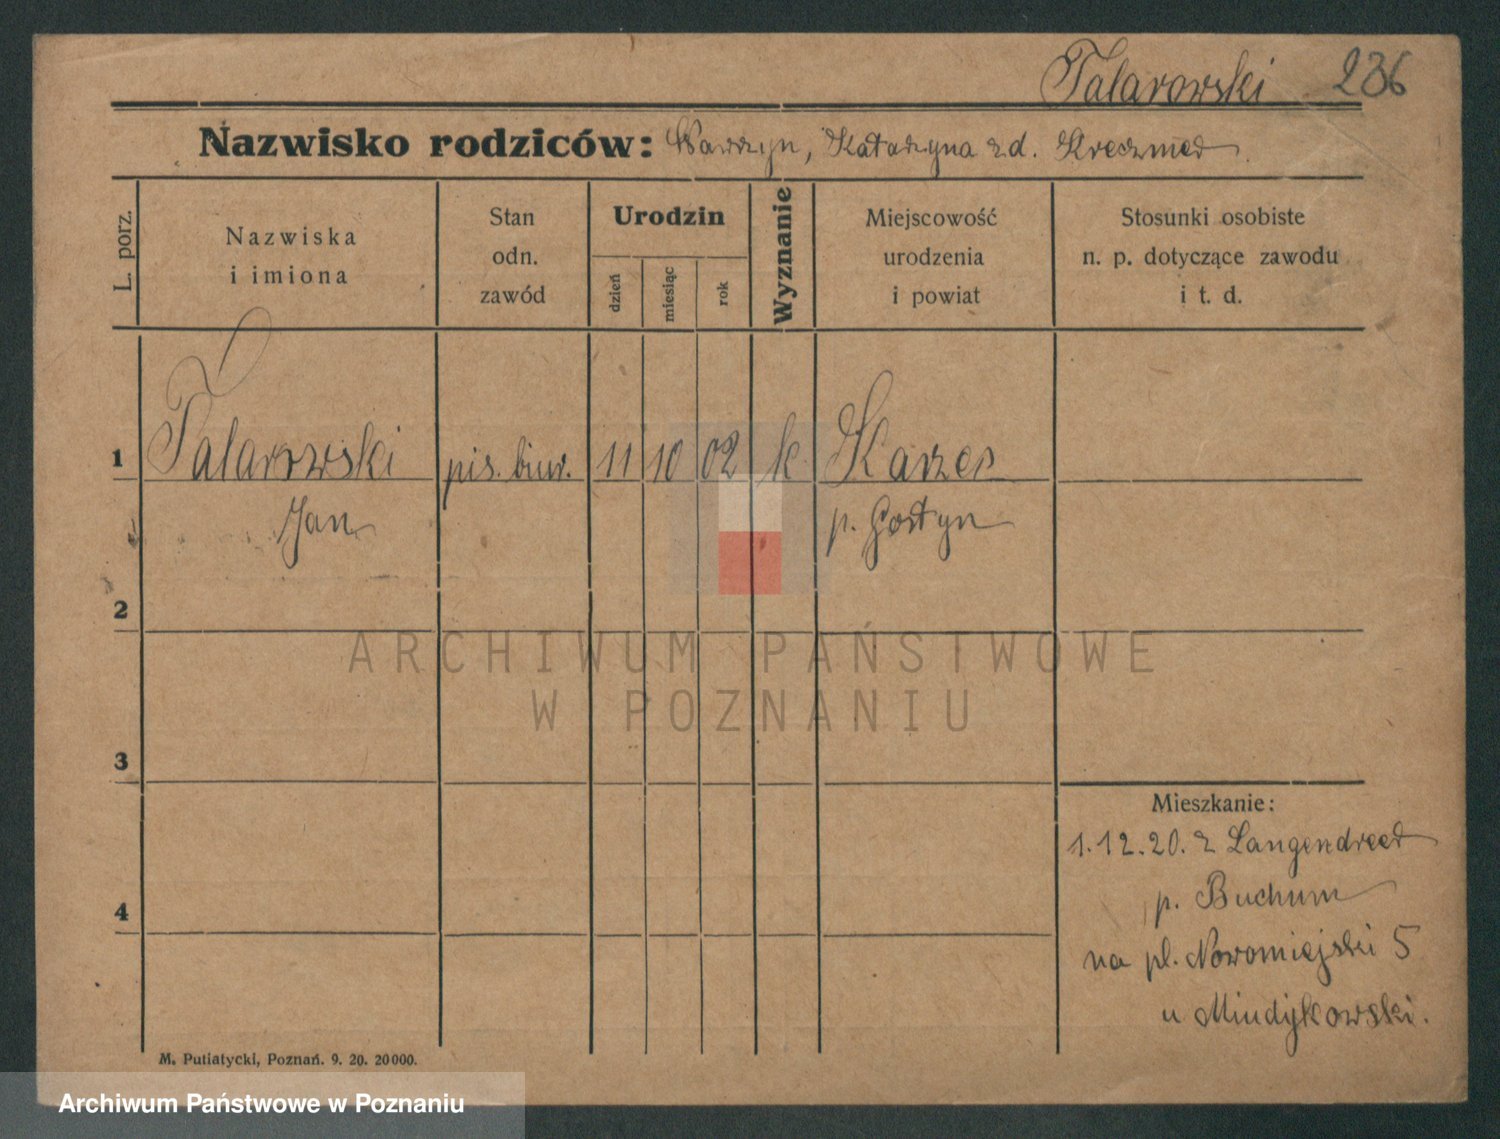 Talarowski 236
Nazwisko rodziców: Wawrzyn, Katarzyna zd.
L. porz.
Nazwiska
i imiona
Stan
odn.
zawód
Urodzin
dzień
miesiąc
rok
Wyznanie
Miejscowość
urodzenia
i powiat
Stosunki osobiste
n. p. dotyczące zawodu
i t. d.
1 Talarowski pis. biur. 11 10 02 k Karzec
Jan p. Gostyn
2
3
4
Mieszkanie:
1.12.20. z Langendreer
p. Buchum
na pl. Nowomiejski 5
u Mindykowski.
M. Putiatycki, Poznań. 9. 20. 20000.
ARCHIWUM PAŃSTWOWE
W POZNANIU
Archiwum Państwowe w Poznaniu